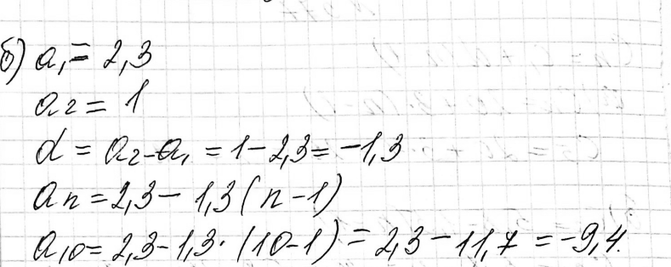 б) a₁ = 2,3
a₂ = 1
d = a₂ - a₁ = 1 - 2,3 = -1,3
aₙ = 2,3 - 1,3 (n - 1)
a₁₀ = 2,3 - 1,3 · (10 - 1) = 2,3 - 11,7 = -9,4.